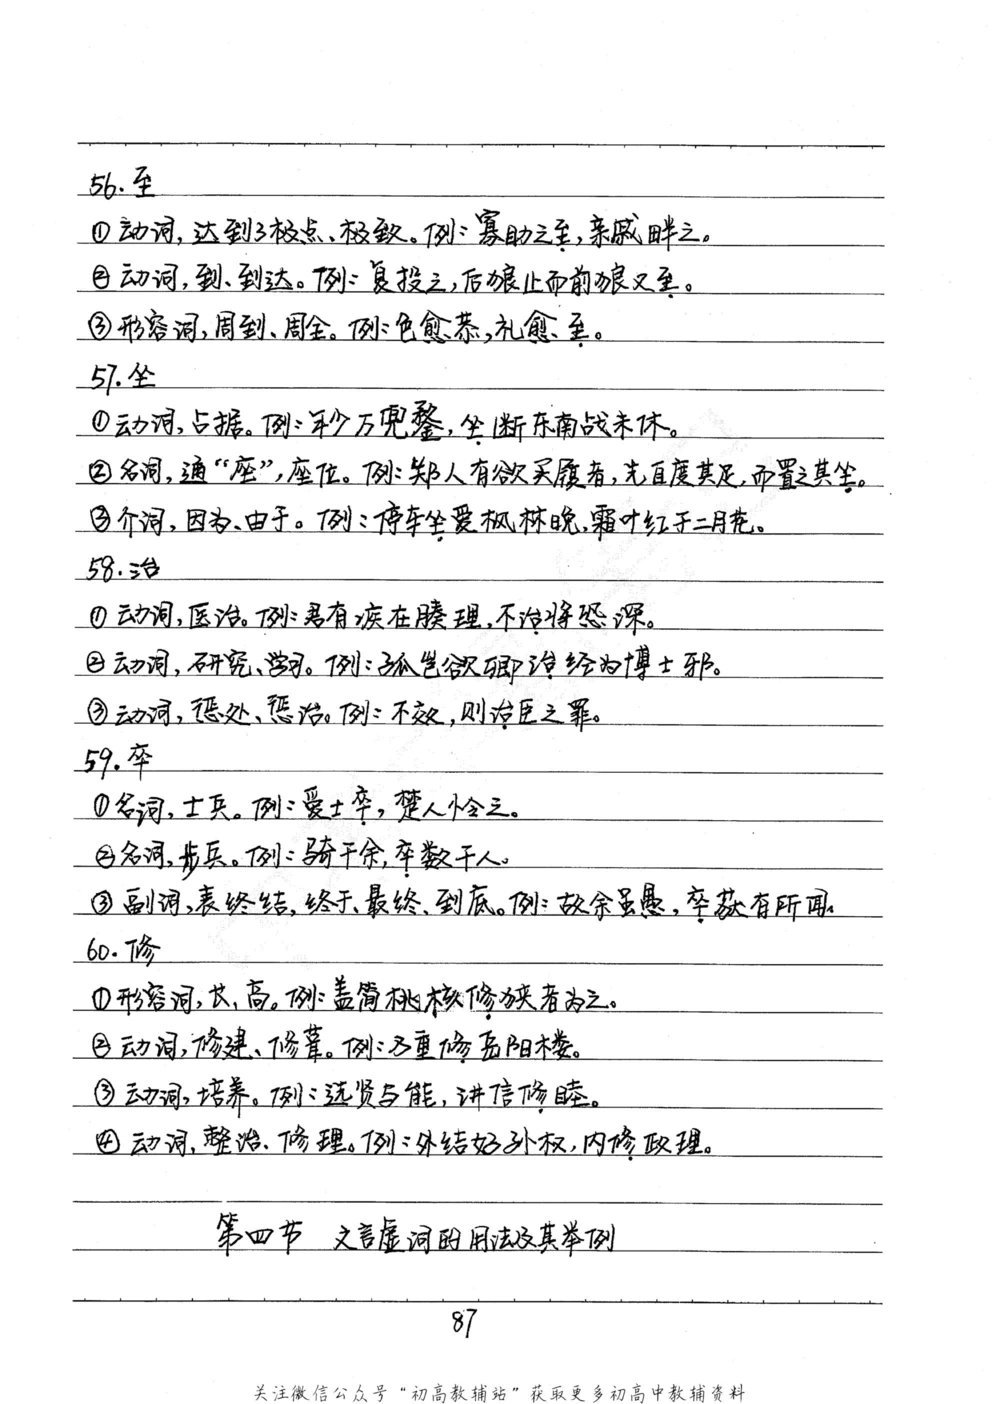 56.至
①动词,达到了极点、极致。例:寡助之至,亲戚畔之。
②动词,到、到达。例:复投之,后狼止而前狼又至。
③形容词,周到、周全。例:色愈恭,礼愈至。
57.坐
①动词,占据。例:年少万兜鍪,坐断东南战未休。
②名词,通“座”,座位。例:郑人有欲买履者,先自度其足,而置之其坐。
③介词,因为、由于。例:停车坐爱枫林晚,霜叶红于二月花。
58.治
①动词,医治。例:君有疾在腠理,不治将恐深。
②动词,研究、学习。例:孤岂欲卿治经为博士邪。
③动词,惩处、惩治。例:不效,则治臣之罪。
59.卒
①名词,士兵。例:爱士卒,楚人怜之。
②名词,步兵。例:骑千余,卒数千人。
③副词,表终结,终于、最终、到底。例:故余虽愚,卒获有所闻。
60.修
①形容词,长,高。例:盖简桃核修狭者为之。
②动词,修建、修葺。例:乃重修岳阳楼。
③动词,培养。例:选贤与能,讲信修睦。
④动词,整治、修理。例:外结好孙权,内修政理。
第四节 文言虚词的用法及其举例
87
关注微信公众号“初高教辅站”获取更多初高中教辅资料